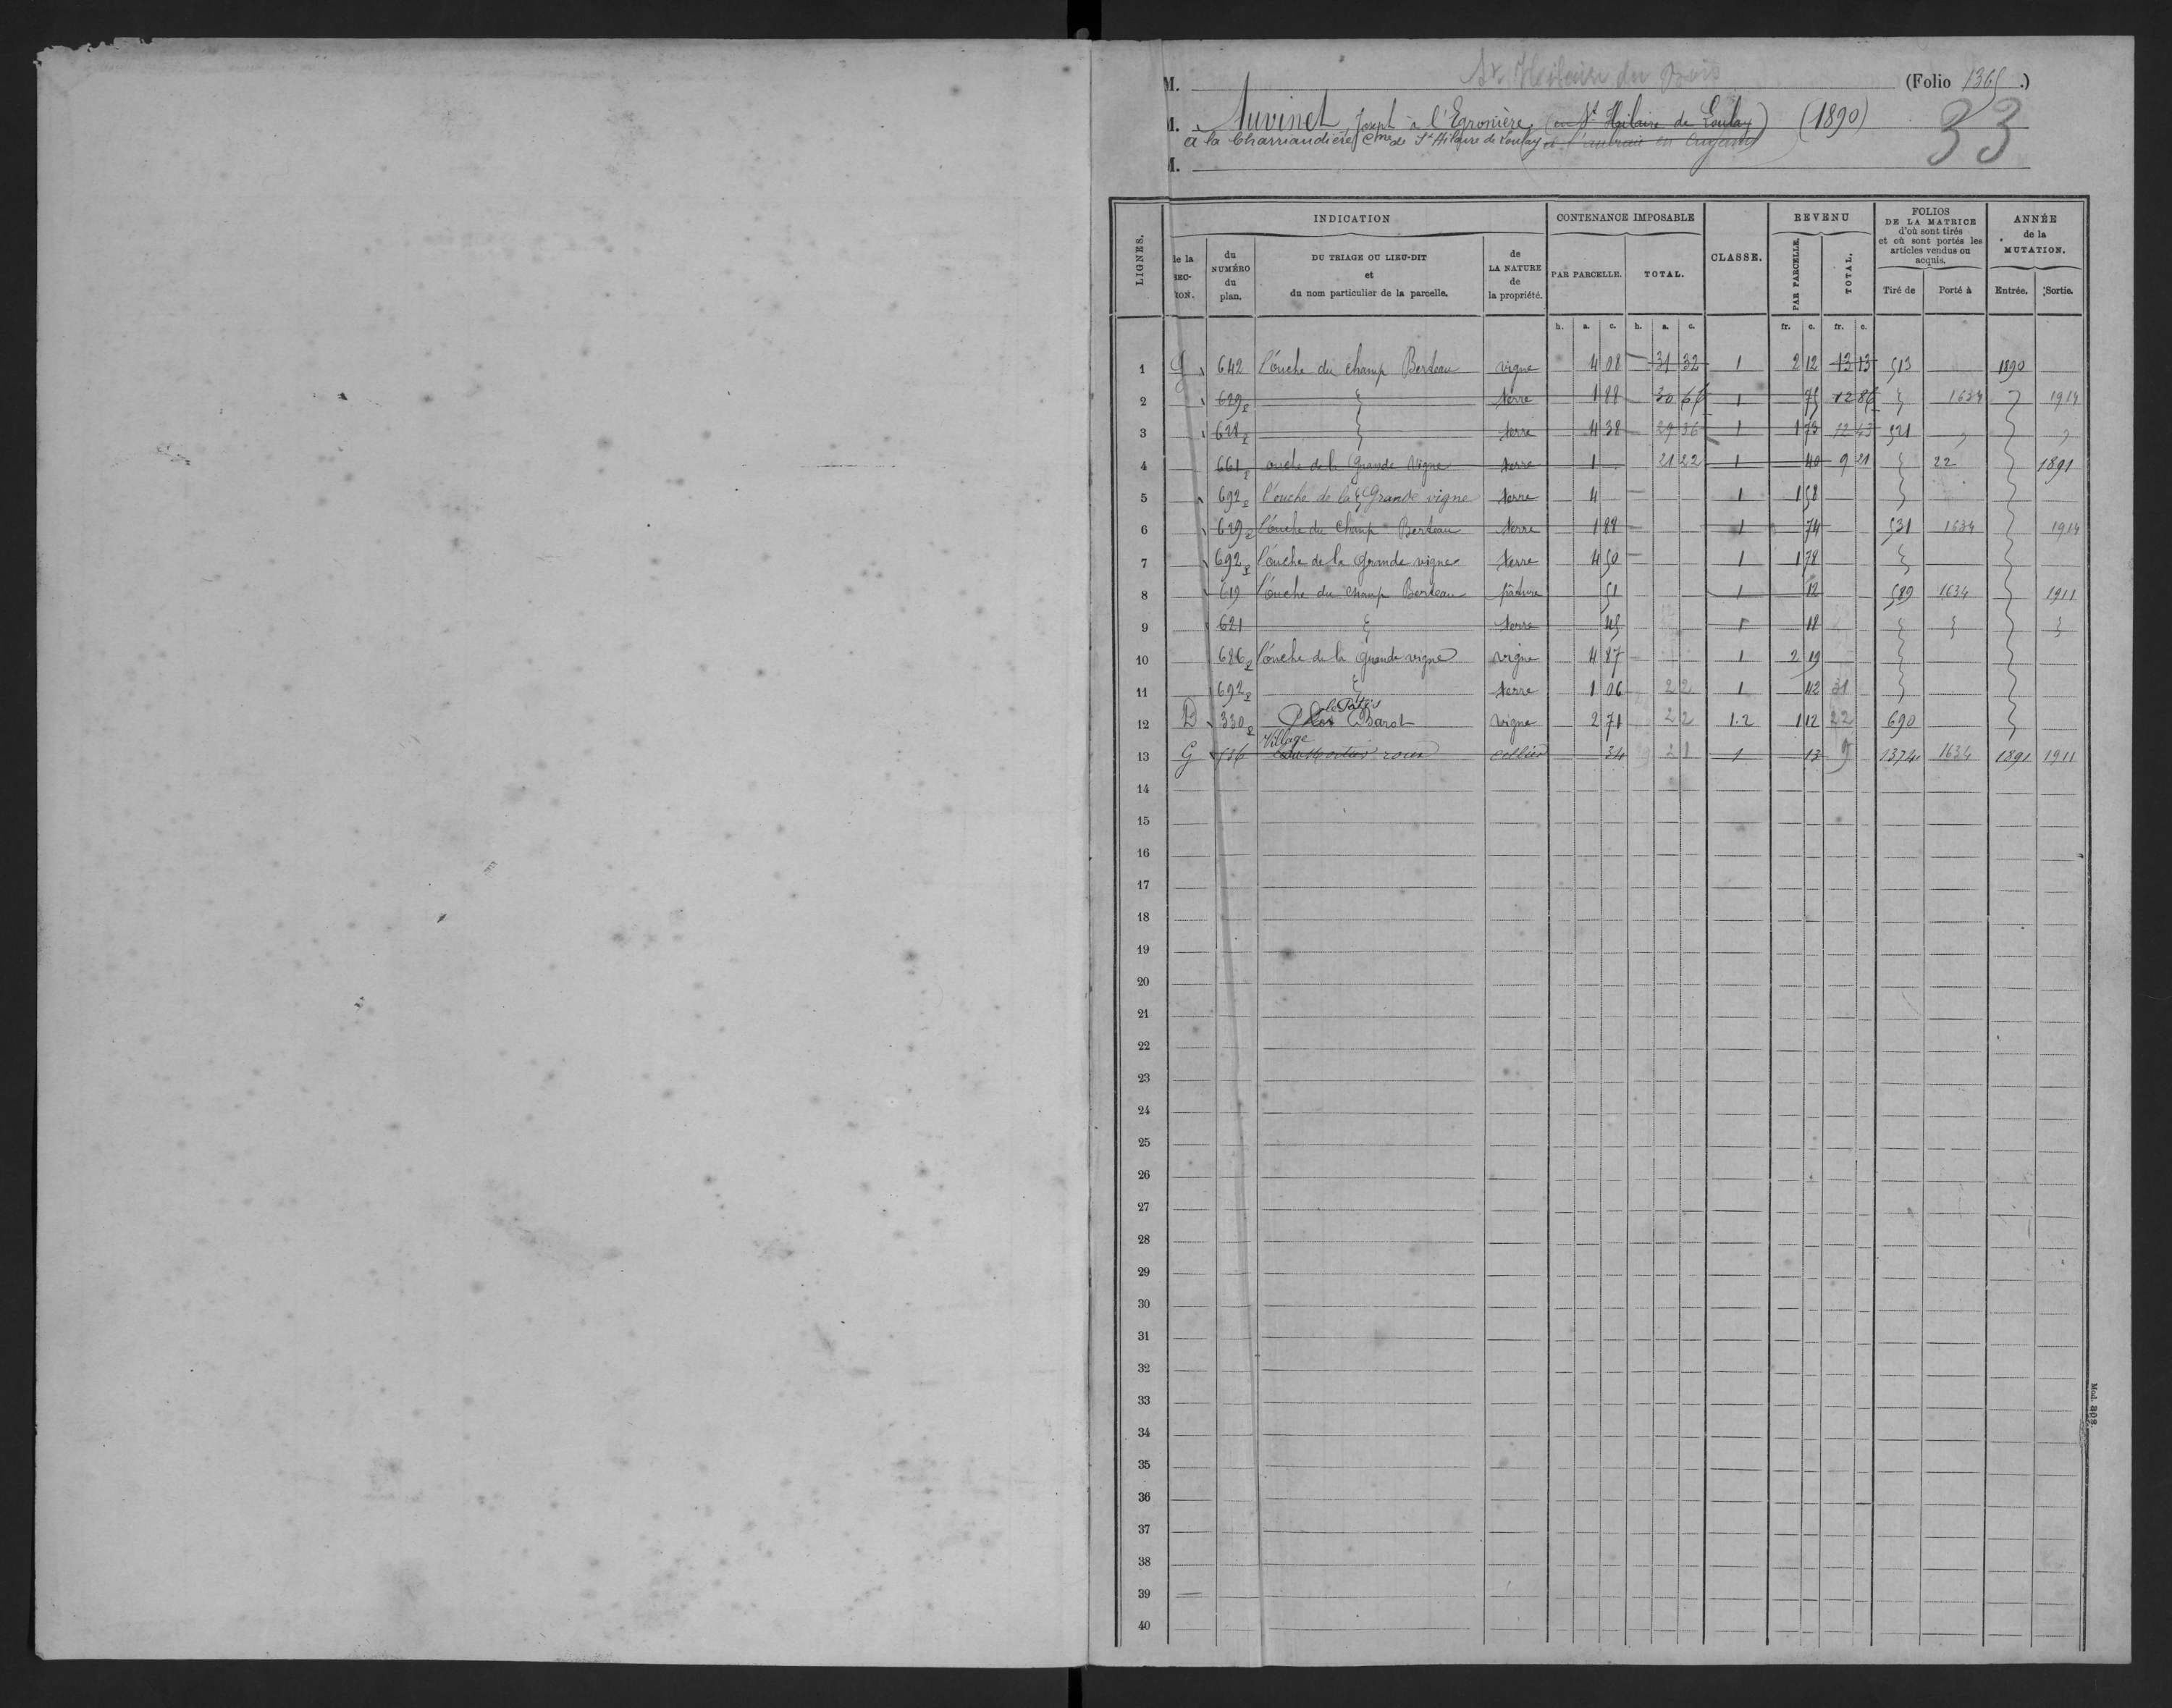 St Hilaire du Bois
M. (Folio 1365.)
M. Auvinet Joseph à l'Egronière (en St Hilaire de Loulay) (1890)
à la Charriaudière Cme de St Hilaire de Loulay
33
M.
LIGNES. INDICATION CONTENANCE IMPOSABLE CLASSE. REVENU FOLIOS DE LA MATRICE d'où sont tirés et où sont portés les articles vendus ou acquis. ANNÉE de la MUTATION.
de la SECTION. du NUMÉRO du plan. DU TRIAGE OU LIEU-DIT et du nom particulier de la parcelle. de LA NATURE de la propriété. PAR PARCELLE. TOTAL. PAR PARCELLE. TOTAL. Tiré de Porté à Entrée. Sortie.
h. a. c. h. a. c. fr. c. fr. c.
1 G 642 l'ouche du champ Berteau vigne 4 08 31 32 1 2 12 13 13 513 1890
2 629 terre 1 88 30 66 1 75 12 86 1634 1914
3 628 terre 4 38 29 36 1 1 73 12 43 521
4 661 ouche de la Grande Vigne terre 1 21 22 1 40 9 21 22 1891
5 692 l'ouche de la Grande vigne terre 4 1 1 58
6 629 l'ouche du champ Berteau terre 1 88 1 74 531 1634 1914
7 692 l'ouche de la Grande vigne terre 4 50 1 1 78
8 619 l'ouche du champ Berteau pâture 51 1 12 589 1634 1911
9 621 terre 45 1 18
10 686 l'ouche de la Grande vigne vigne 4 87 1 2 19
11 692 terre 1 06 22 1 42 31
12 D 330 le Pâtis Barot vigne 2 71 22 1.2 1 12 22 690
13 G 586 Village cellier 34 21 1 13 9 1374 1634 1891 1911
14
15
16
17
18
19
20
21
22
23
24
25
26
27
28
29
30
31
32
33
34
35
36
37
38
39
40
Mod. 302.